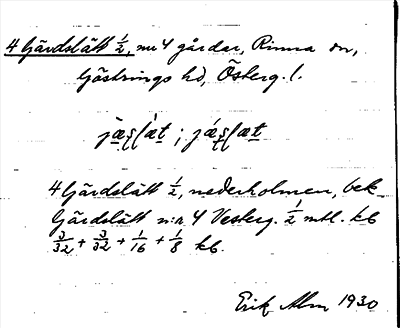 4 Gärdslätt ½, nu 4 gårdar, Rinna sn,
Göstrings hd, Österg. l.
4 Gärdslätt ½, nederholmen, bek.
Gärdslätt n:r 4 Vesterg. ½ mtl. kb
3/32 + 3/32 + 1/16 + 1/8 kb.
Erik Alm 1930